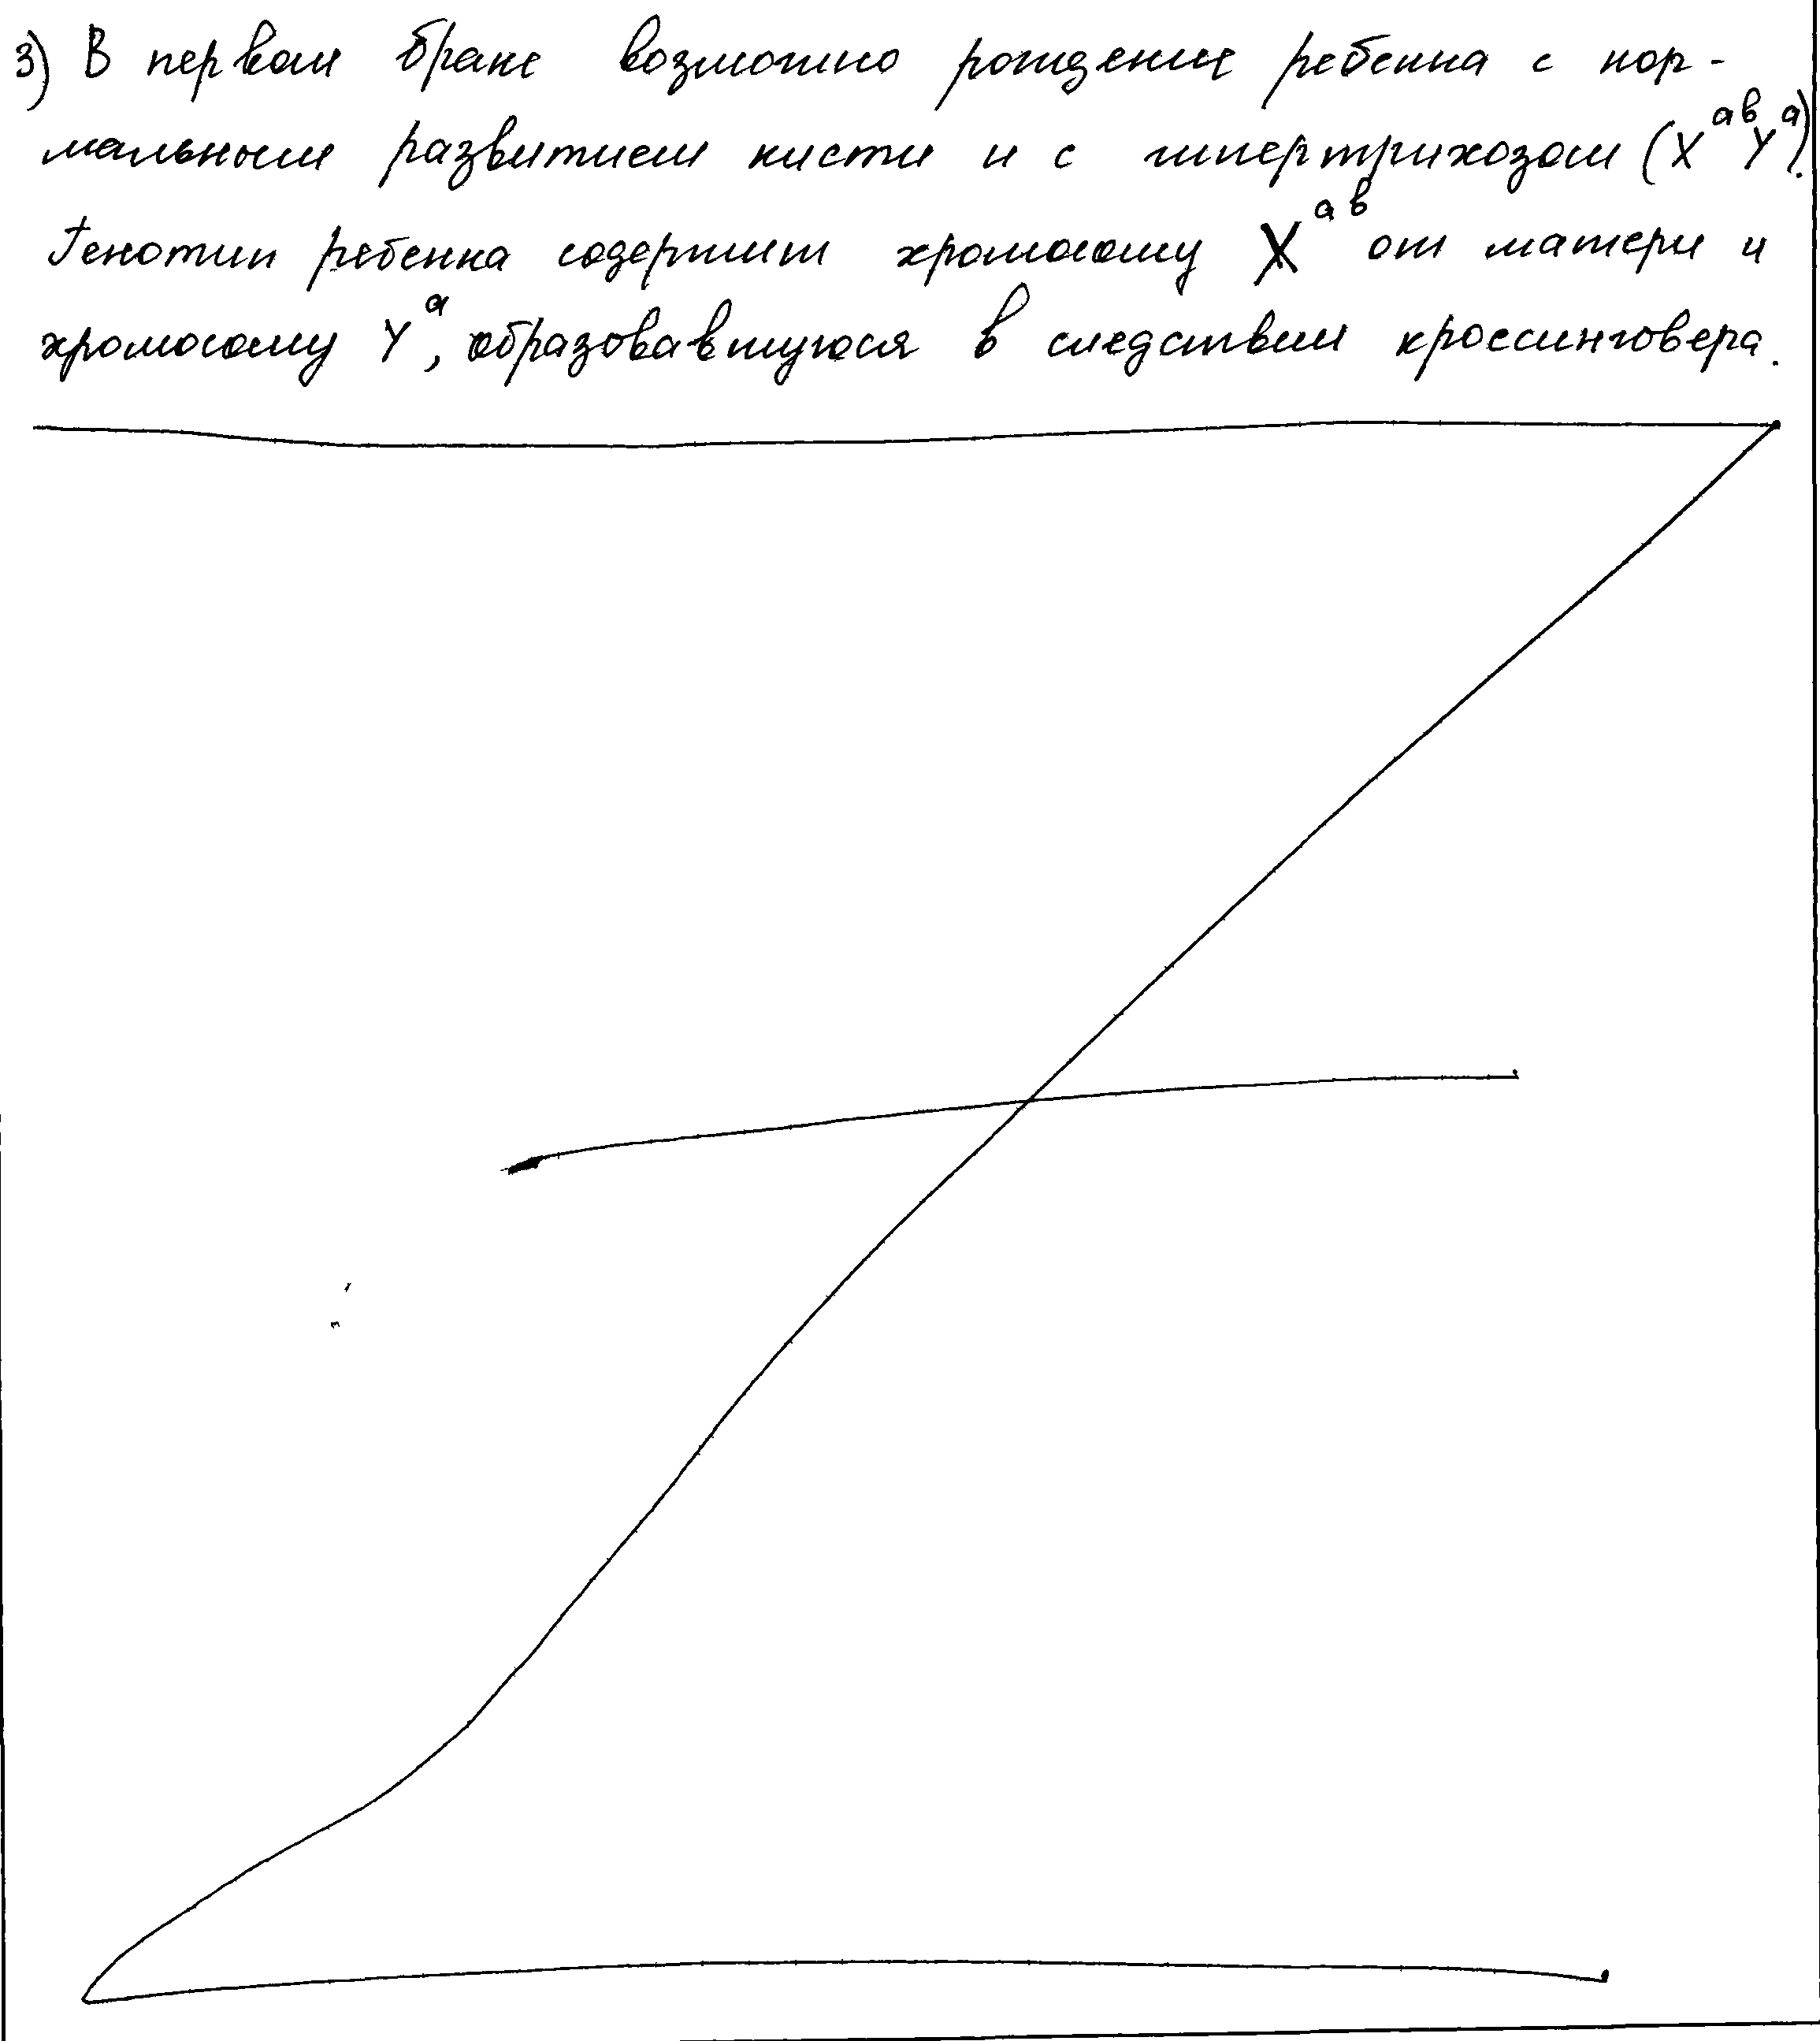 3) В первом браке возможно рождение ребенка с нор-
мальным развитием кисти и с гипертрихозом (X^ab Y^a).
Генотип ребенка содержит хромосому X^ab от матери и
хромосому Y^a, образовавшуюся в следствии кроссинговера.